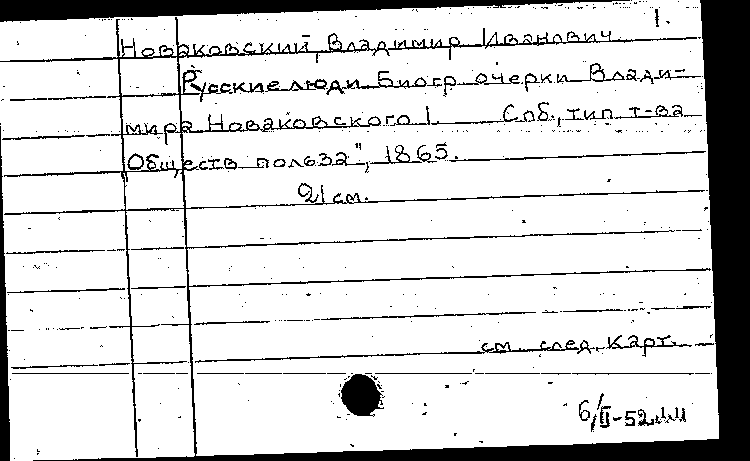 1.
Новаковский, Владимир Иванович.
Русские люди. Биогр. очерки Влади-
мира Новаковского 1. Спб., тип. т-ва
„Обществ. польза", 1865.
21 см.
см. след. карт.
6/II-52